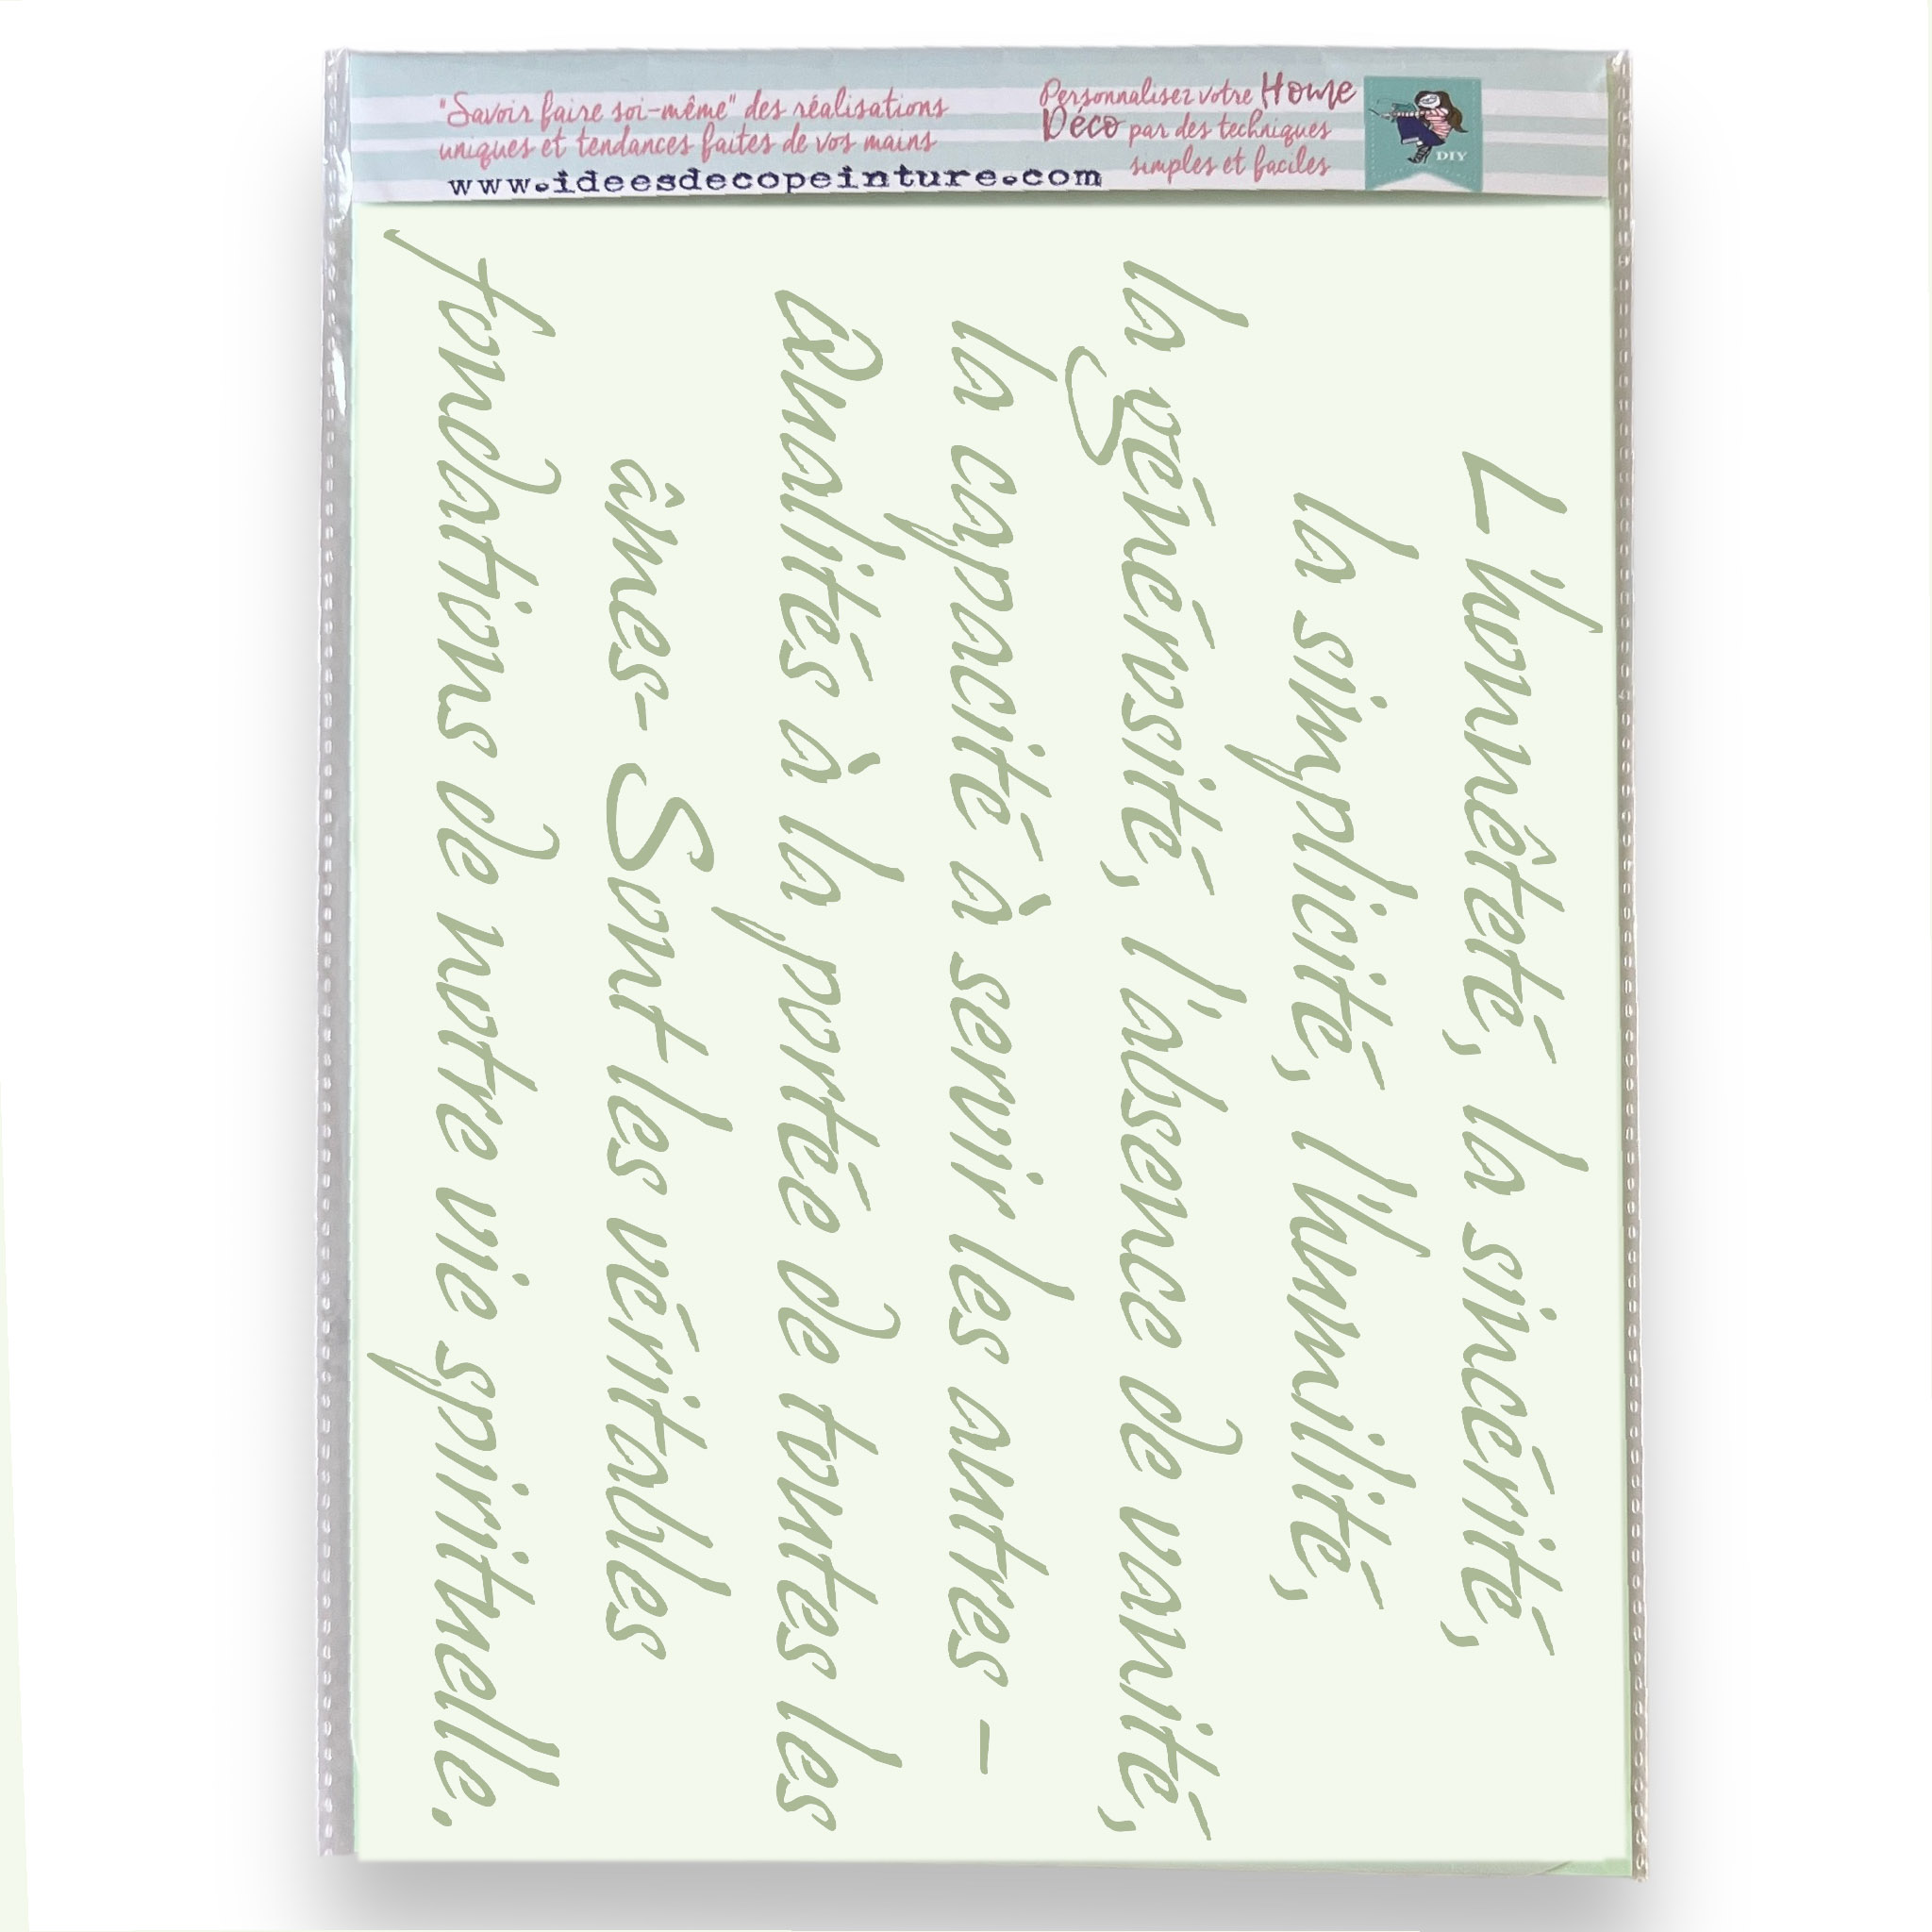 "Savoir faire soi-même" des réalisations
uniques et tendances faites de vos mains
www.ideesdecopeinture.com
Personnalisez votre Home
Déco par des techniques
simples et faciles
DIY
L'honnêteté, la sincérité,
la simplicité, l'humilité,
la générosité, l'absence de vanité,
la capacité à servir les autres -
Qualités à la portée de toutes les
âmes- Sont les véritables
fondations de notre vie spirituelle.